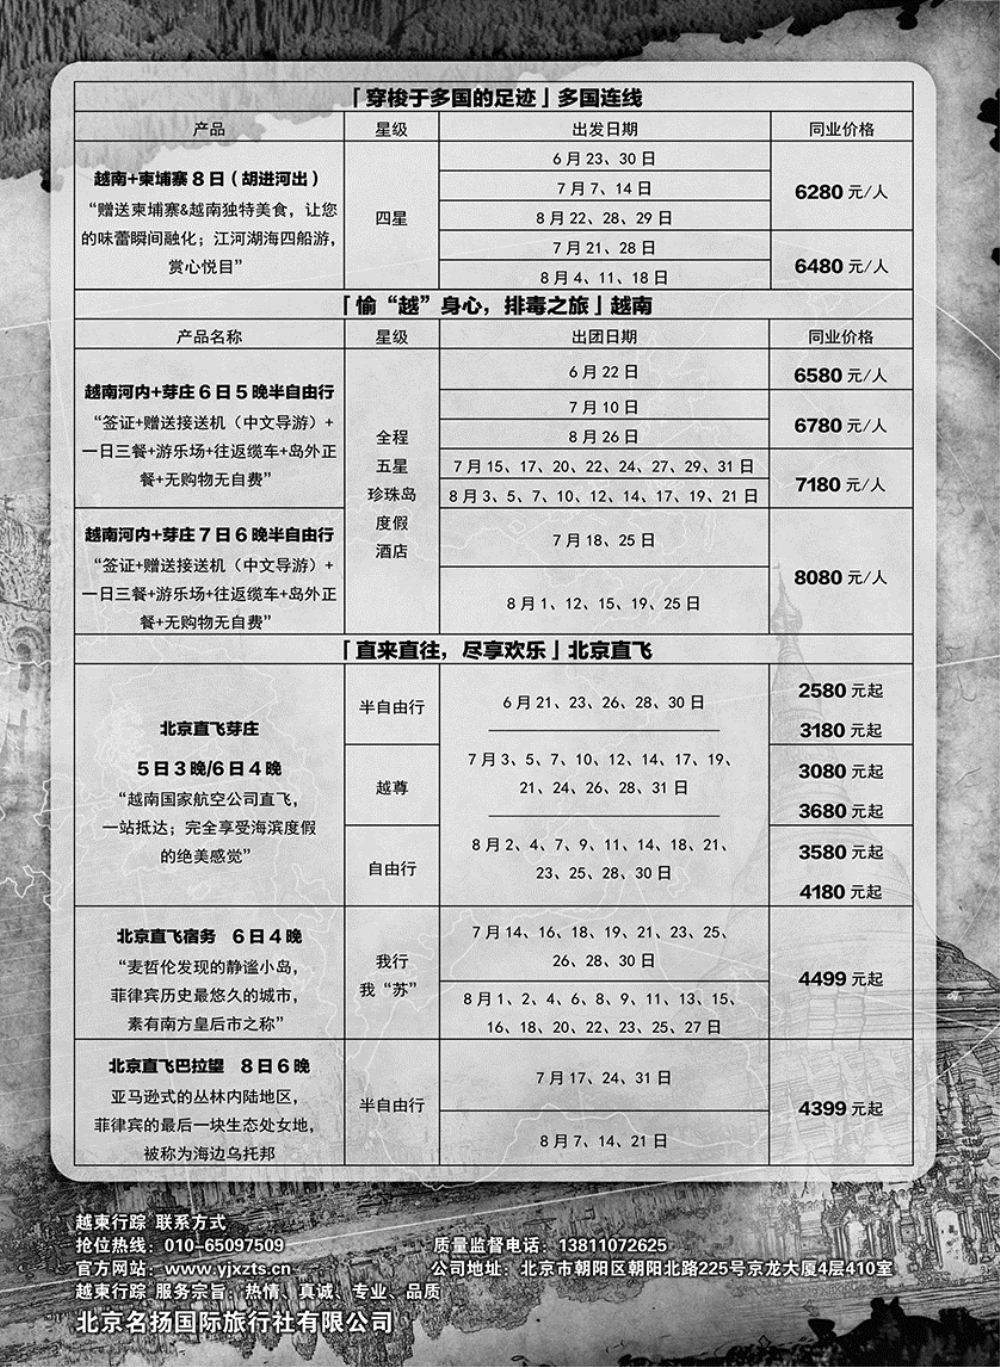 「穿梭于多国的足迹」多国连线
产品
星级
出发日期
同业价格
越南+柬埔寨 8 日（胡进河出）
“赠送柬埔寨&越南独特美食，让您
的味蕾瞬间融化；江河湖海四船游，
赏心悦目”
四星
6 月 23、30 日
7 月 7、14 日
8 月 22、28、29 日
6280 元/人
7 月 21、28 日
8 月 4、11、18 日
6480 元/人
「愉“越”身心，排毒之旅」越南
产品名称
星级
出团日期
同业价格
越南河内+芽庄 6 日 5 晚半自由行
“签证+赠送接送机（中文导游）+
一日三餐+游乐场+往返缆车+岛外正
餐+无购物无自费”
全程
五星
珍珠岛
度假
酒店
6 月 22 日
6580 元/人
7 月 10 日
8 月 26 日
6780 元/人
7 月 15、17、20、22、24、27、29、31 日
8 月 3、5、7、10、12、14、17、19、21 日
7180 元/人
越南河内+芽庄 7 日 6 晚半自由行
“签证+赠送接送机（中文导游）+
一日三餐+游乐场+往返缆车+岛外正
餐+无购物无自费”
7 月 18、25 日
8 月 1、12、15、19、25 日
8080 元/人
「直来直往，尽享欢乐」北京直飞
北京直飞芽庄
5 日 3 晚/6 日 4 晚
“越南国家航空公司直飞，
一站抵达；完全享受海滨度假
的绝美感觉”
半自由行
越尊
自由行
6 月 21、23、26、28、30 日
7 月 3、5、7、10、12、14、17、19、
21、24、26、28、31 日
8 月 2、4、7、9、11、14、18、21、
23、25、28、30 日
2580 元起
3180 元起
3080 元起
3680 元起
3580 元起
4180 元起
北京直飞宿务 6 日 4 晚
“麦哲伦发现的静谧小岛，
菲律宾历史最悠久的城市，
素有南方皇后市之称”
我行
我“苏”
7 月 14、16、18、19、21、23、25、
26、28、30 日
8 月 1、2、4、6、8、9、11、13、15、
16、18、20、22、23、25、27 日
4499 元起
北京直飞巴拉望 8 日 6 晚
亚马逊式的丛林内陆地区，
菲律宾的最后一块生态处女地，
被称为海边乌托邦
半自由行
7 月 17、24、31 日
8 月 7、14、21 日
4399 元起
越柬行踪 联系方式
抢位热线：010-65097509
质量监督电话：13811072625
官方网站：www.yjxzts.cn
公司地址：北京市朝阳区朝阳北路225号京龙大厦4层410室
越柬行踪 服务宗旨：热情、真诚、专业、品质
北京名扬国际旅行社有限公司